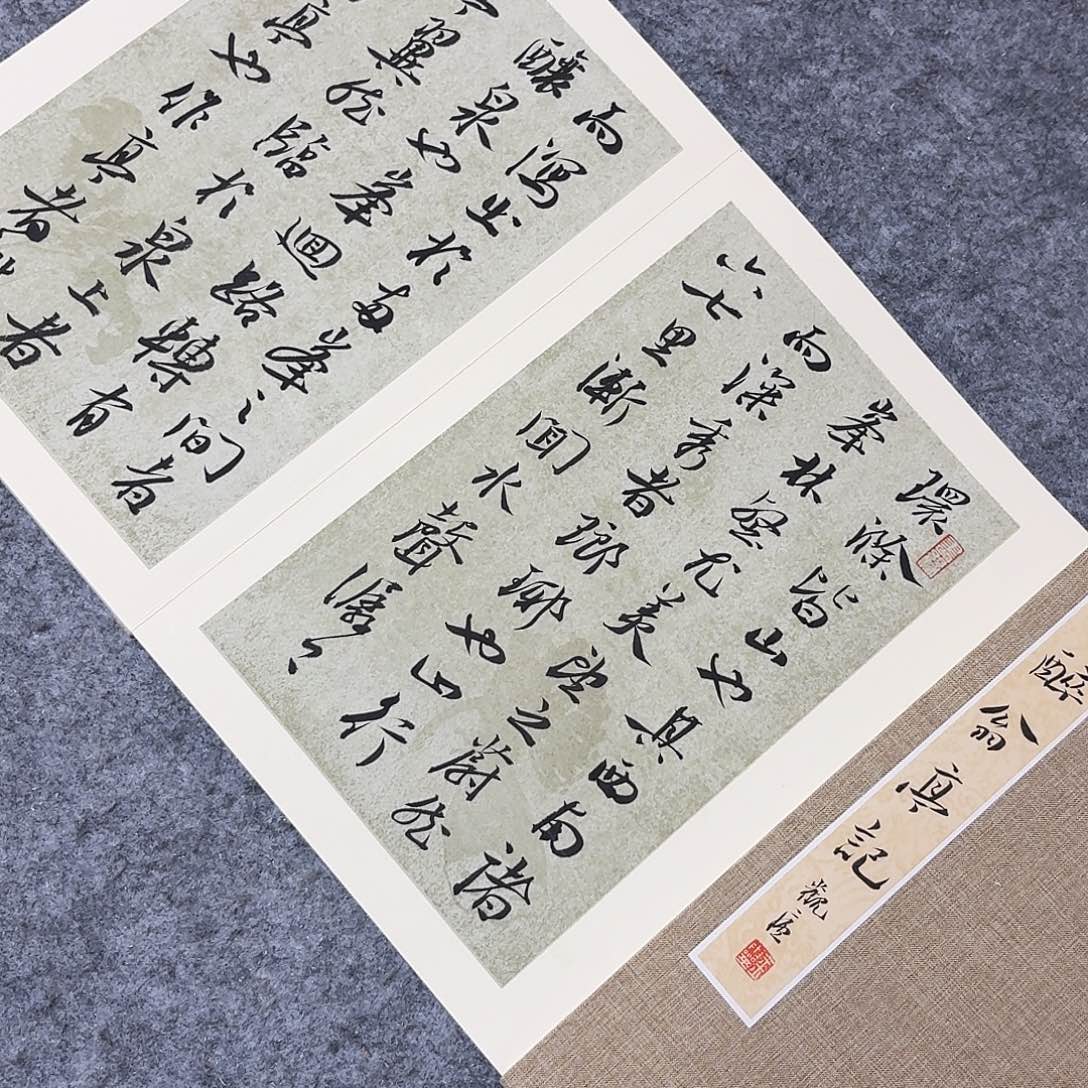 環滁皆山也其西南諸
峯林壑尤美望之蔚然
而深秀者瑯琊也山行
六七里漸聞水聲潺〻
而瀉出於兩峯〻間者
釀泉也峯迴路轉有
亭翼然臨於泉上者
亭也作亭者
醉翁亭記